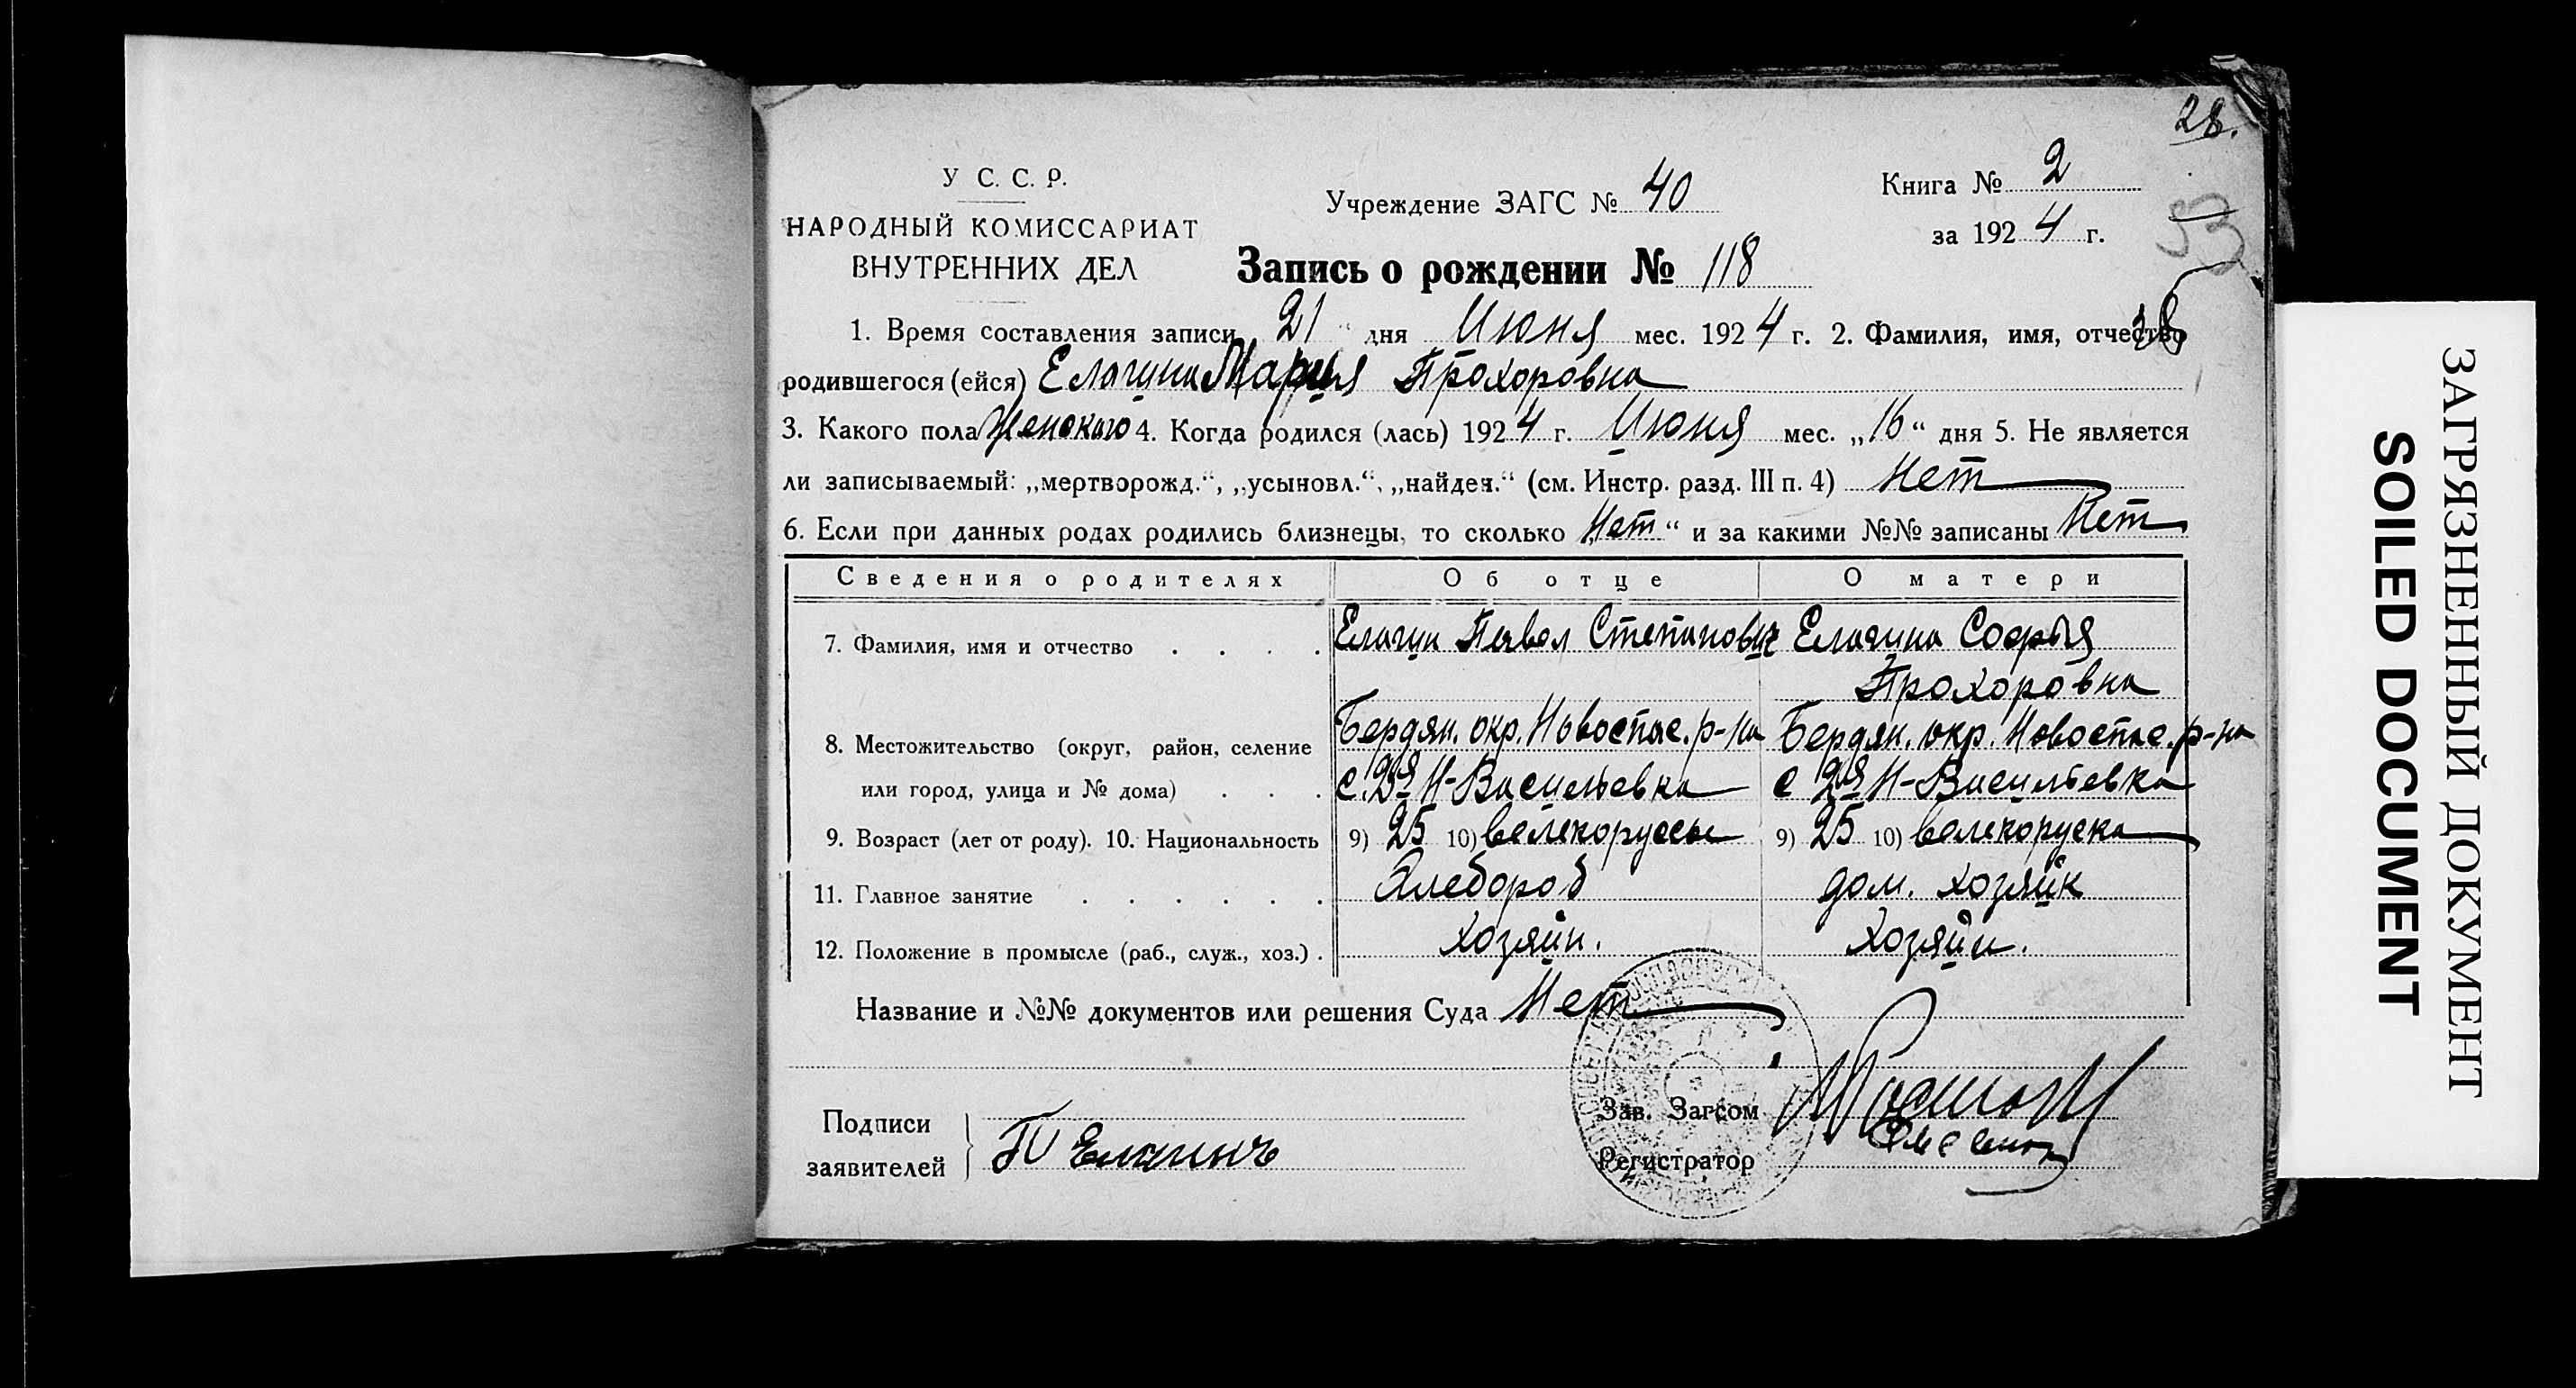 28.
У С. С. Р.
НАРОДНЫЙ КОМИССАРИАТ
ВНУТРЕННИХ ДЕЛ
Учреждение ЗАГС № 40
Книга № 2
за 1924 г.
53
Запись о рождении № 118
1. Время составления записи 21 " дня Июня мес. 1924 г. 2. Фамилия, имя, отчество
38
родившегося (ейся) Елагина Мария Прохоровна
3. Какого пола Женского 4. Когда родился (лась) 1924 г. Июня мес. „16“ дня 5. Не является
ли записываемый: „мертворожд.“, „усыновл.“, „найден.“ (см. Инстр. разд. III п. 4) Нет
6. Если при данных родах родились близнецы, то сколько „Нет“ и за какими №№ записаны Нет
Сведения о родителях Об отце О матери
7. Фамилия, имя и отчество . . . . Елагин Павел Степанович Елагина Софья
Прохоровна
8. Местожительство (округ, район, селение Бердян. окр. Новоспас. р-на Бердян. окр. Новоспас. р-на
или город, улица и № дома) . . . с. 2я Н-Васильевка с 2я Н-Васильевка
9. Возраст (лет от роду). 10. Национальность 9) 25 10) велекоруссы 9) 25 10) велекоруска
11. Главное занятие . . . . . . Хлебороб дом. хозяйк
12. Положение в промысле (раб., служ., хоз.) . хозяин. хозяин.
Название и №№ документов или решения Суда Нет
Подписи
заявителей
П Елагинъ
Зав. Загсом
Регистратор
ЗАГРЯЗНЕННЫЙ ДОКУМЕНТ
SOILED DOCUMENT